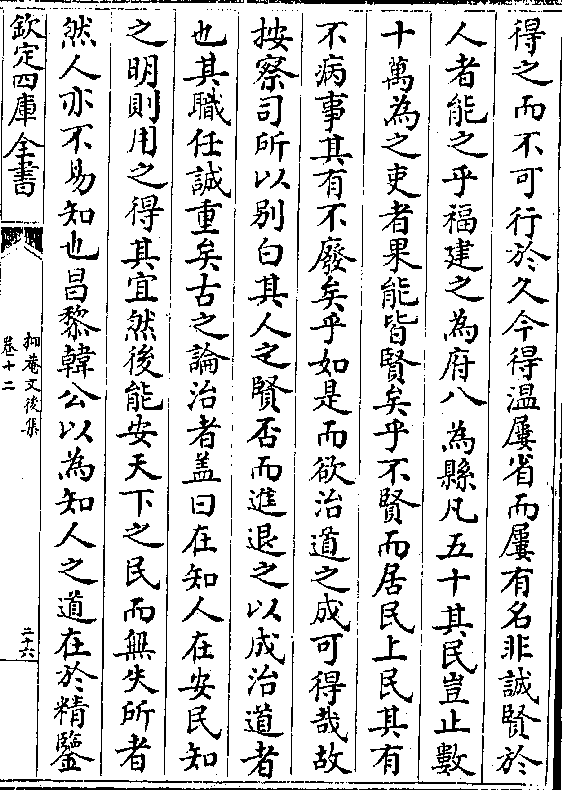 得之而不可行於久今得溫屢省而屢有名非誠賢於
人者能之乎福建之為府八為縣凡五十其民豈止數
十萬為之吏者果能皆賢矣乎不賢而居民上民其有
不病事其有不廢矣乎如是而欲治道之成可得哉故
按察司所以別白其人之賢否而進退之以成治道者
也其職任誠重矣古之論治者盖曰在知人在安民知
之明則用之得其宜然後能安天下之民而無失所者
然人亦不易知也昌黎韓公以為知人之道在於精鑒
欽定四庫全書
抑菴文後集
卷十二
二十六